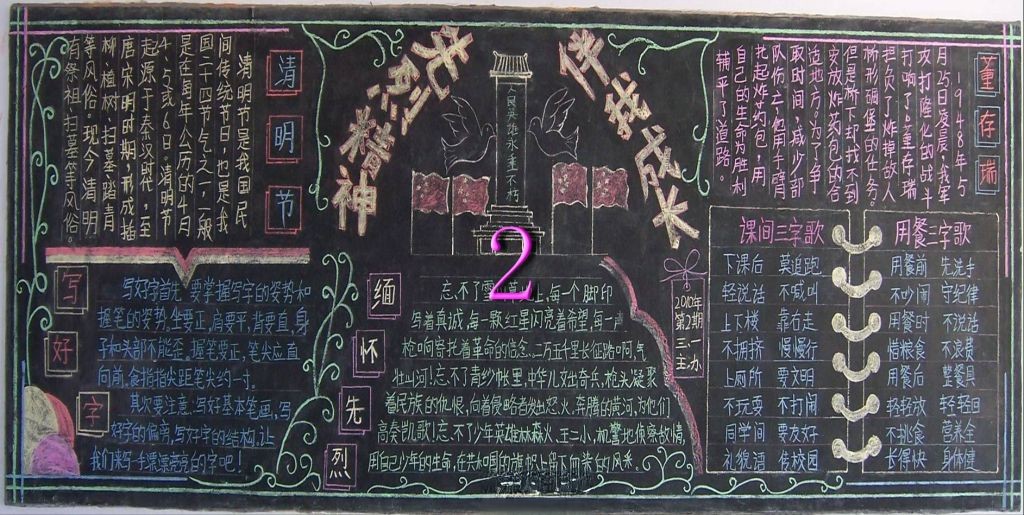 清明节
清明节是我国民
间传统节日,也是我
国二十四节气之一,一般
是在每年公历的4月
4、5或6日。清明节
起源于秦汉时代,至
唐宋明时期,形成插
柳、植树、扫墓、踏青
等风俗。现今清明
有祭祖、扫墓等风俗。
先烈精神
伴我成长
人民英雄永垂不朽
董存瑞
1948年5
月25日凌晨,我军
攻打隆化的战斗
打响了。董存瑞
担负了炸掉敌人
桥形碉堡的任务。
但是桥下却找不到
安放炸药包的合
适地方。为了争
取时间,减少部
队伤亡,他用手臂
托起炸药包,用
自己的生命为胜利
铺平了道路。
写好字
写好字首先要掌握写字的姿势和
握笔的姿势。坐要正,肩要平,背要直,身
子和头部不能歪。握笔要正,笔尖应直
向前,食指指尖距笔尖约一寸。
其次要注意写好基本笔画,写
好字的偏旁,写好字的结构,让
我们来写一手漂漂亮亮的字吧!
2
缅怀先烈
忘不了雪山上,每一个脚印
写着真诚,每一颗红星闪亮着希望,每一声
枪响寄托着革命的信念,二万五千里长征路啊,气
壮山河!忘不了青纱帐里,中华儿女出奇兵,枪头凝聚
着民族的仇恨,向着侵略者发出怒火,奔腾的黄河,为他们
高奏凯歌!忘不了少年英雄林森火、王二小,机警地侦察敌情,
用自己少年的生命,在共和国的旗帜上留下血染的风采。
2010年
第2期
三、一
主办
课间三字歌
下课后 莫追跑
轻说话 不喊叫
上下楼 靠右走
不拥挤 慢慢行
上厕所 要文明
不玩耍 不打闹
同学间 要友好
礼貌语 传校园
用餐三字歌
用餐前 先洗手
不吵闹 守纪律
用餐时 不说话
惜粮食 不浪费
用餐后 整餐具
轻轻放 轻轻回
不挑食 营养全
长得快 身体健